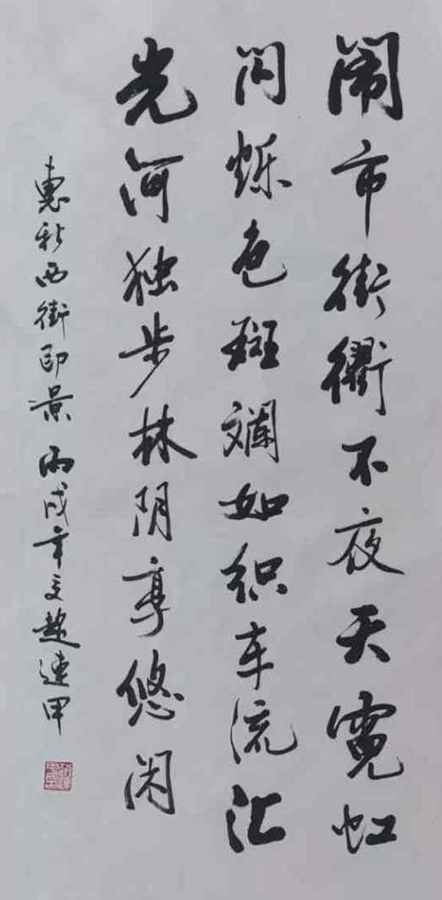 闹市街衢不夜天霓虹
闪烁色斑斓如织车流汇
光河独步林阴享悠闲
惠新西街即景丙戌年文赵连甲